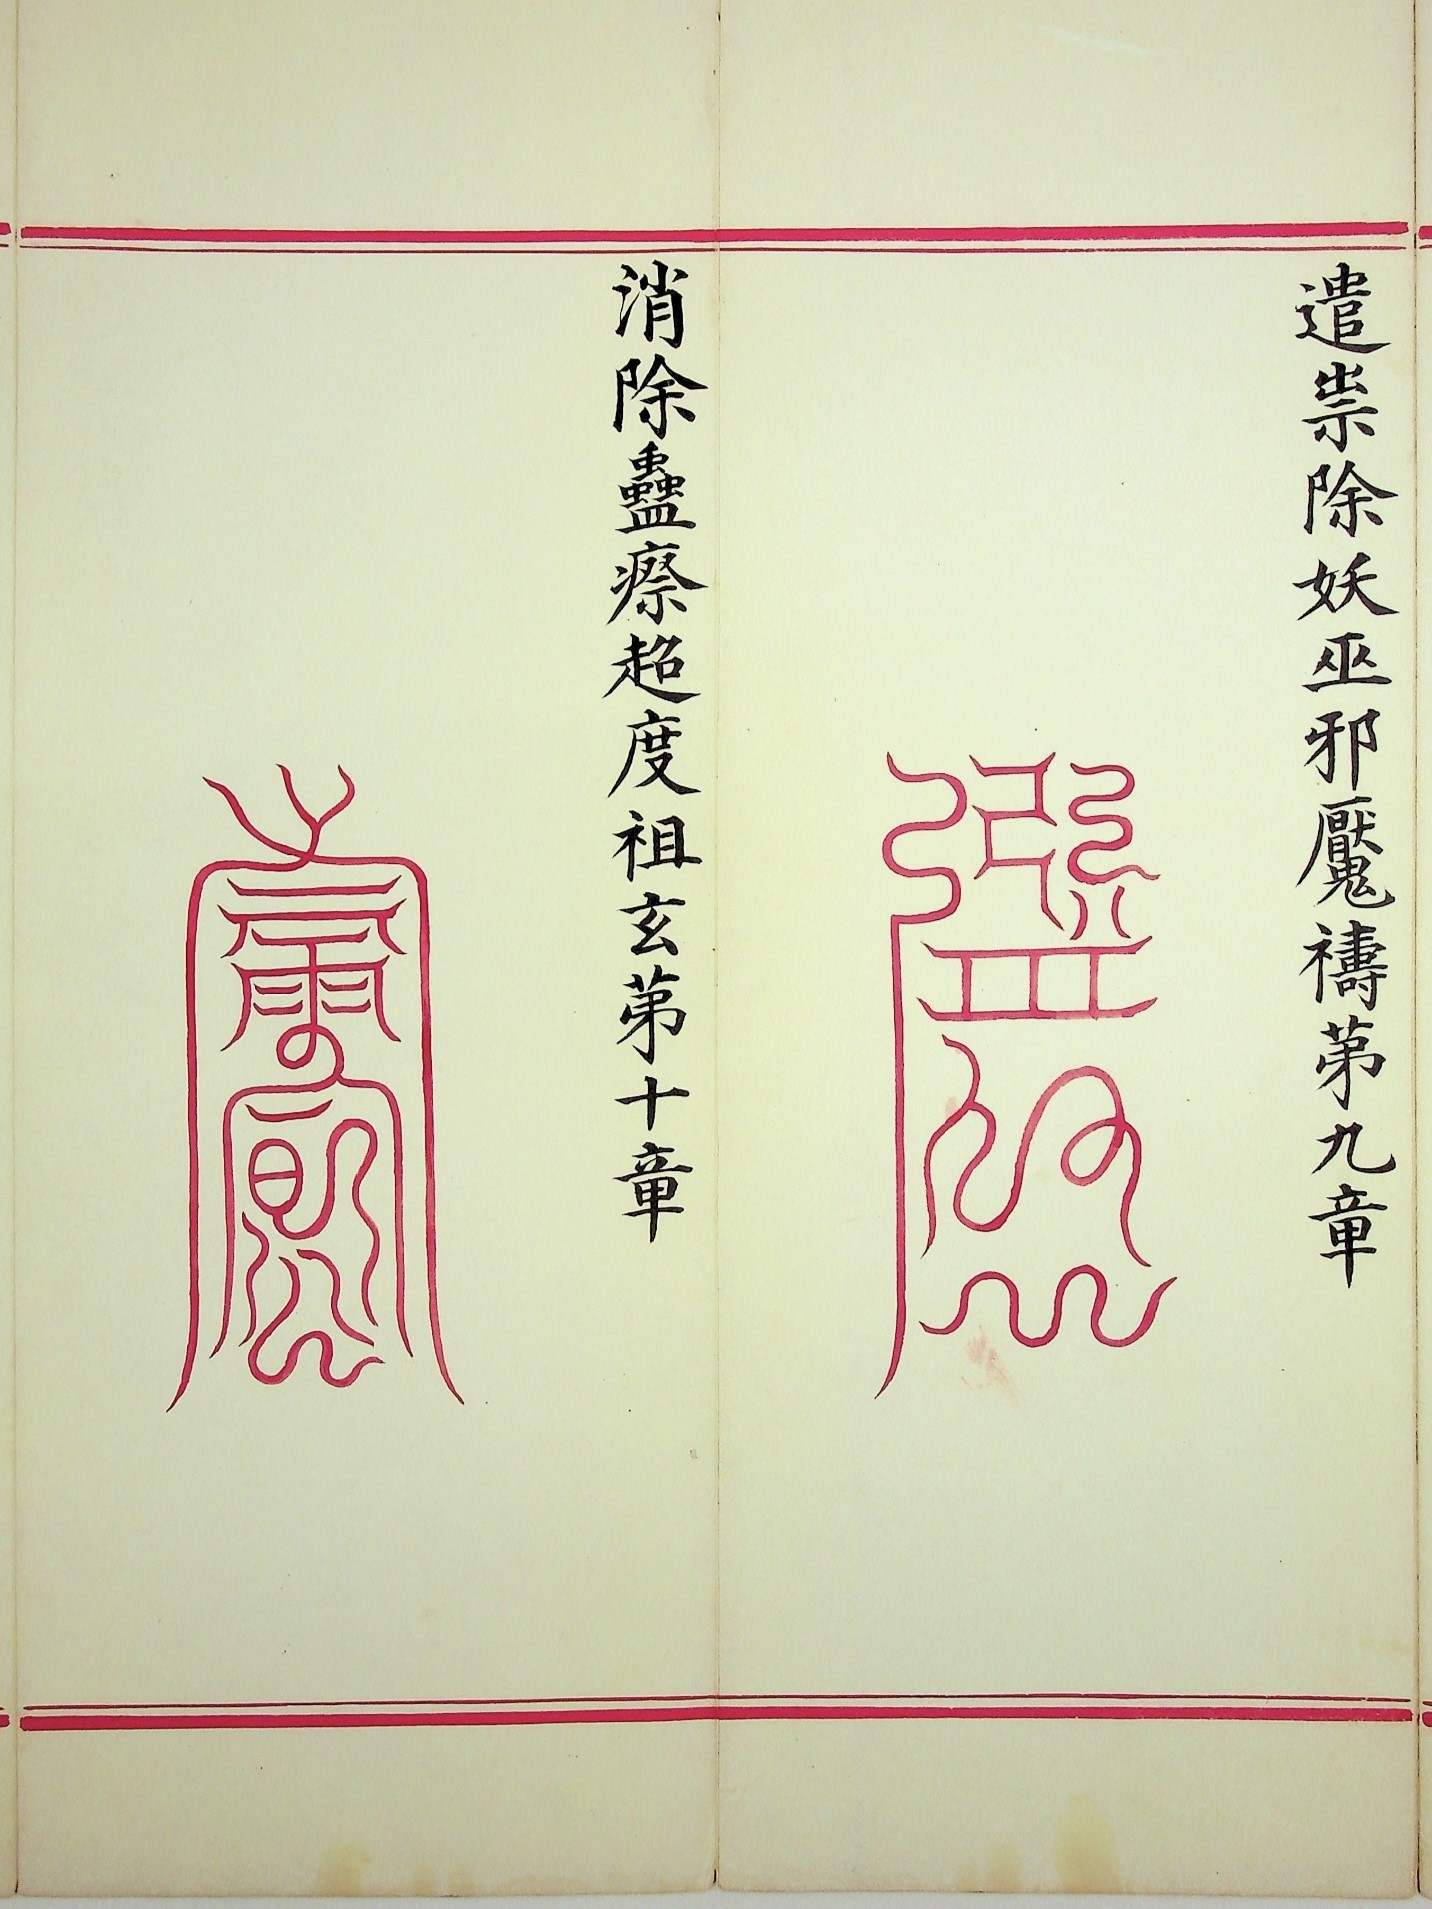 遣祟除妖巫邪魘禱苐九章
消除蠱瘵超度祖玄苐十章